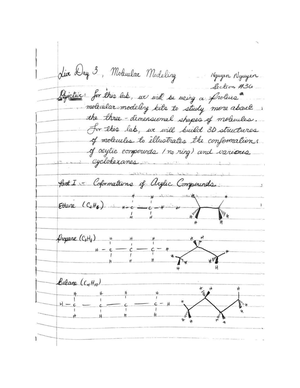 Lab Day 3, Molecular Modeling
Nguyen Nguyen
Section #36
Objective: For this lab, we will be using a Prolius
molecular modeling kits to study more about
the three-dimensional shapes of molecules.
For this lab, we will build 3D structures
of molecules to illustrates the conformations
of acylic compounds (no ring) and various
cyclohexanes.
Part I: Coformations of Acylic Compounds
Ethane (C₂H₆)
Propane (C₃H₈)
H - C - C - C - H
Butane (C₄H₁₀)
H - C - C - C - C - H